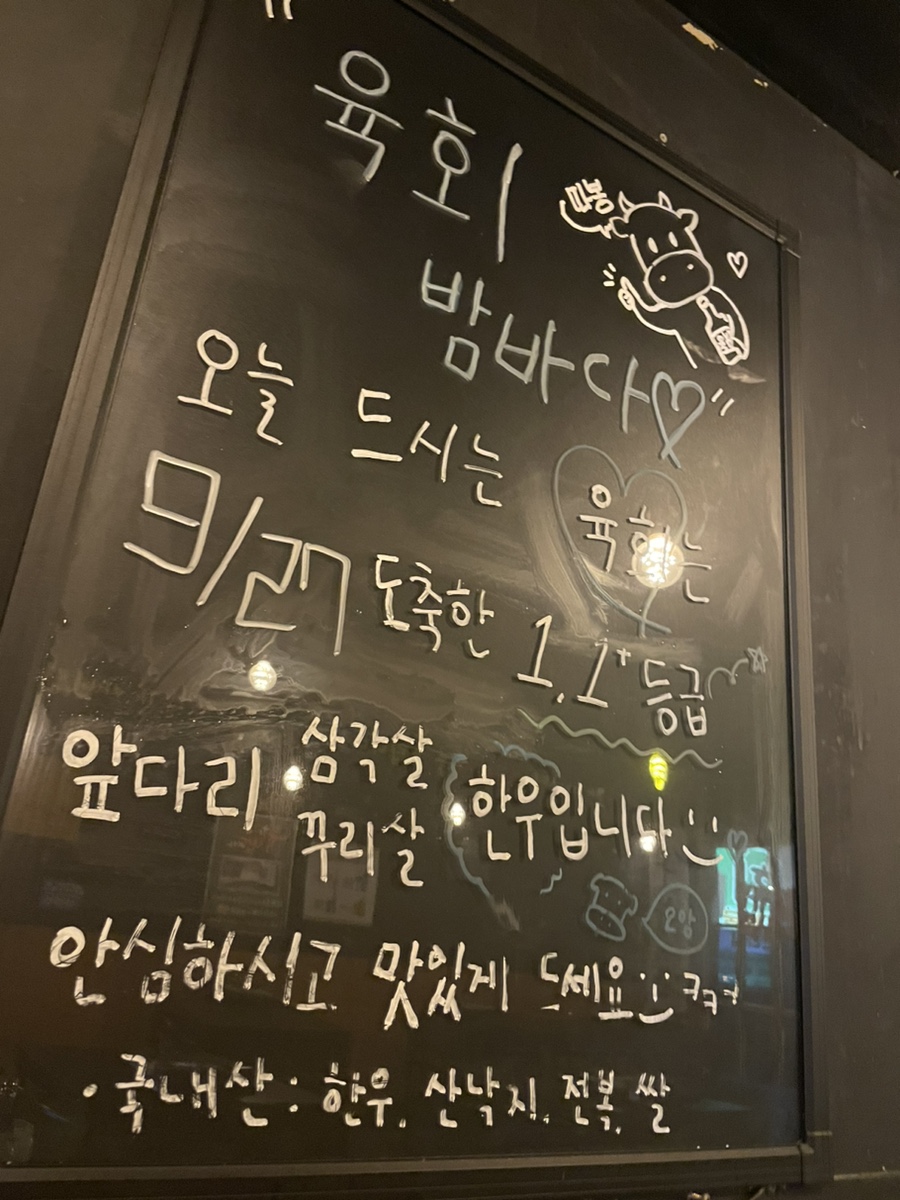 "육회
따봉
밤바다♡"
오늘 드시는 육회는
9/27 도축한 1,1⁺등급
앞다리 삼각살
꾸리살 한우입니다
안심하시고 맛있게 드세요 ㅋㅋㅋ
· 국내산 : 한우, 산낙지, 전복, 쌀